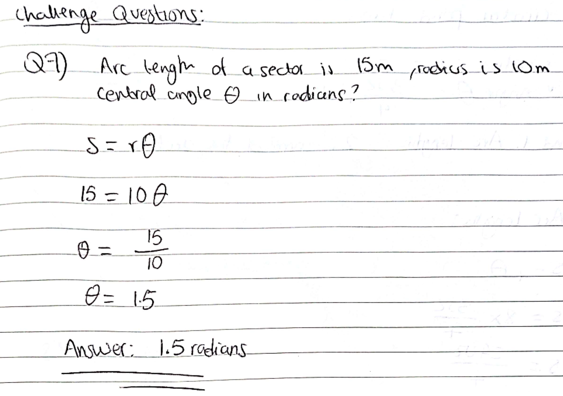 Challenge Questions:
Q7) Arc length of a sector is 15m, radius is 10m
central angle θ in radians?
S = rθ
15 = 10θ
θ = 15/10
θ = 1.5
Answer: 1.5 radians